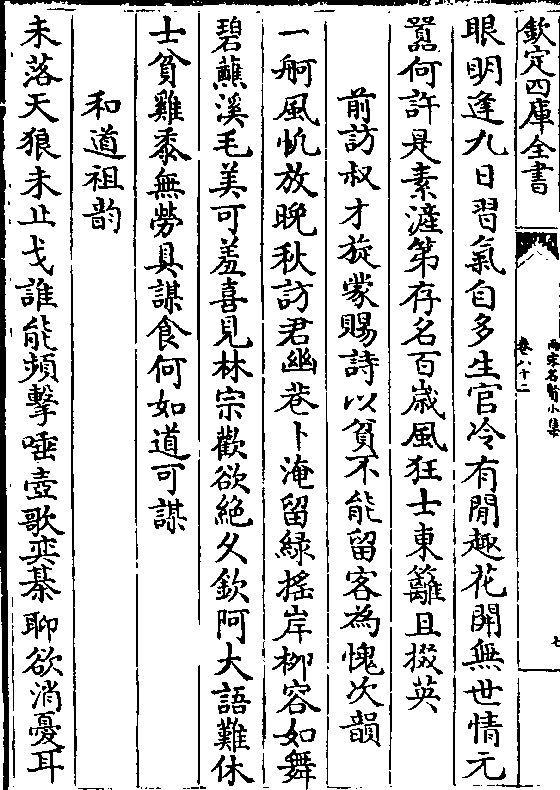 欽定四庫全書
兩宋名賢小集
卷八十二
七
眼明逢九日習氣自多生官冷有閒趣花開無世情元
囂何許是素滻第存名百歲風狂士東籬且掇英
前訪叔才旋蒙賜詩以貧不能留客為愧次韻
一舸風帆放晚秋訪君幽巷卜淹留緑搖岸栁容如舞
碧蘸溪毛美可羞喜見林宗歡欲絶久欽阿大語難休
士貧雞黍無勞具謀食何如道可謀
和道祖韵
未落天狼未止戈誰能頻擊唾壺歌奕棊聊欲消憂耳